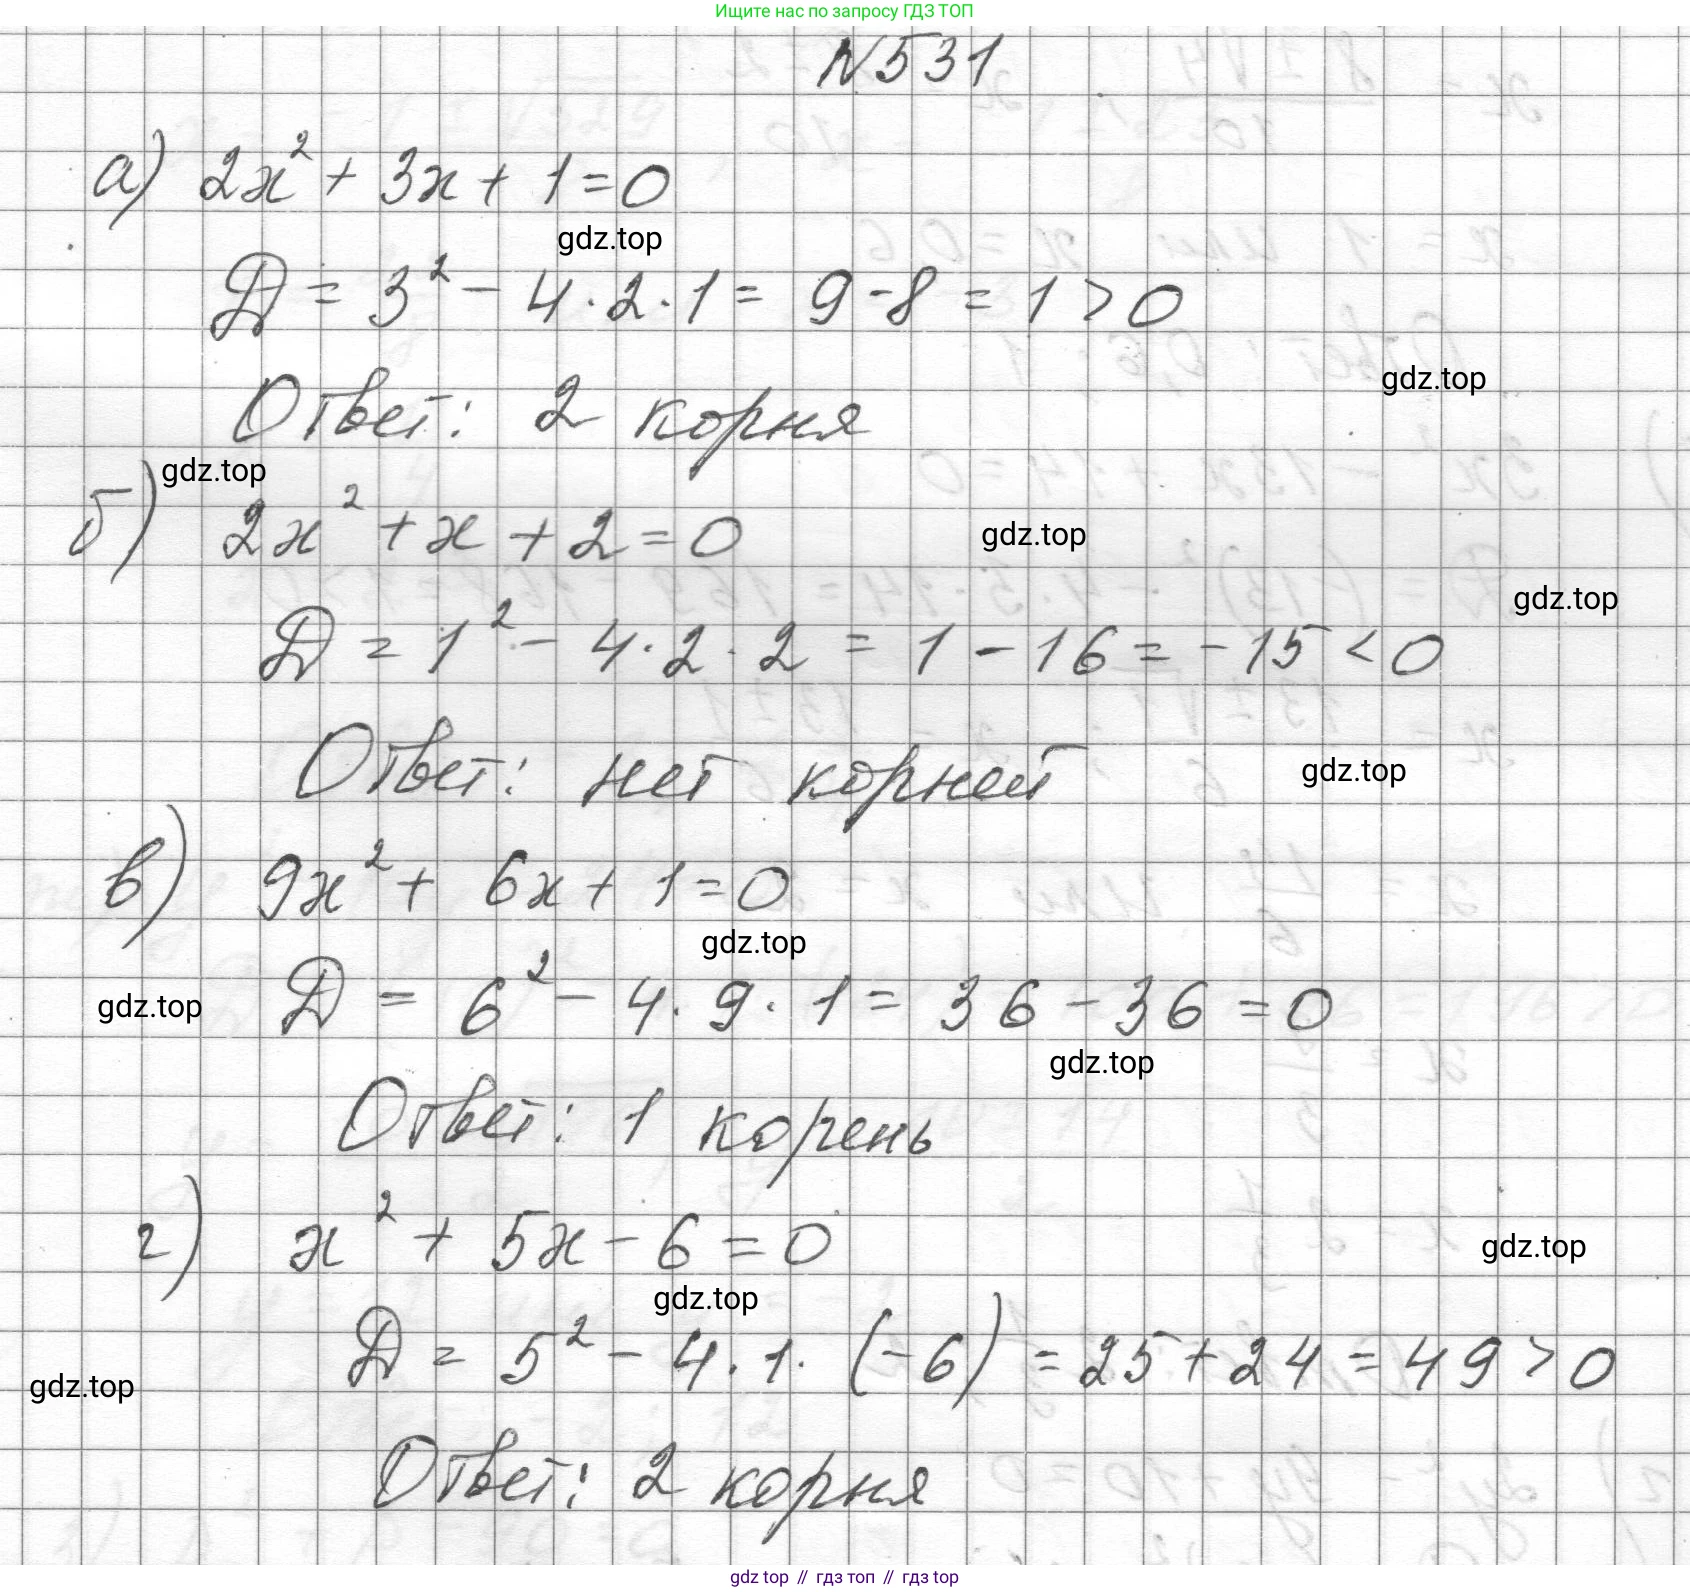 Ищите нас по запросу ГДЗ ТОП
N531
а) 2x² + 3x + 1 = 0
gdz.top
Д = 3² - 4 · 2 · 1 = 9 - 8 = 1 > 0
gdz.top
Ответ: 2 корня
gdz.top
б) 2x² + x + 2 = 0
gdz.top
gdz.top
Д = 1² - 4 · 2 · 2 = 1 - 16 = -15 < 0
Ответ: нет корней
gdz.top
в) 9x² + 6x + 1 = 0
gdz.top
gdz.top
Д = 6² - 4 · 9 · 1 = 36 - 36 = 0
gdz.top
Ответ: 1 корень
г) x² + 5x - 6 = 0
gdz.top
gdz.top
Д = 5² - 4 · 1 · (-6) = 25 + 24 = 49 > 0
gdz.top
Ответ: 2 корня
gdz top // гдз топ // гдз top